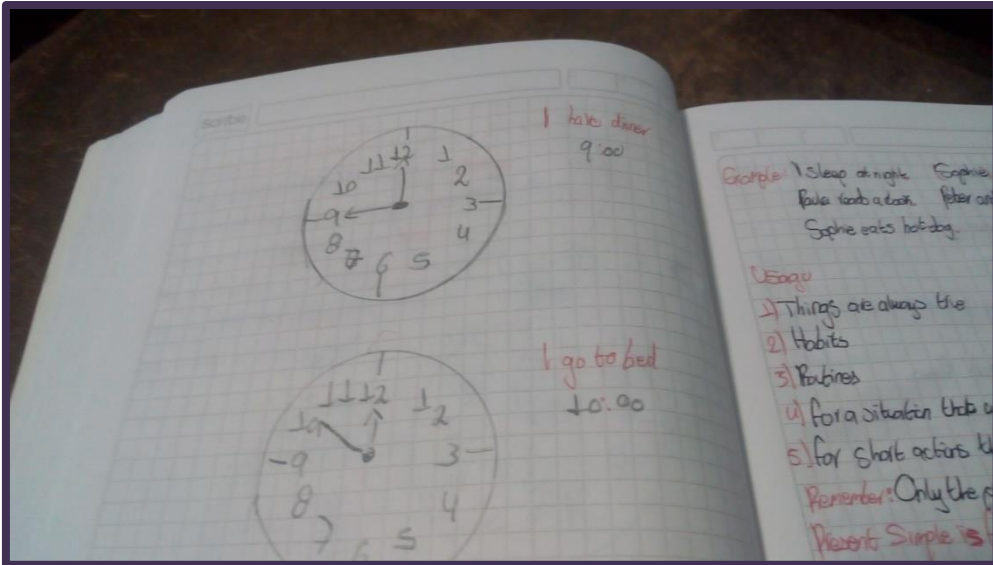 scribe
I have dinner
9:00
12
1
11
2
10
3
9
4
8
7
6
5
I go to bed
10:00
11 12
1
2
10
3
9
4
8
7
6
5
Example: I sleep at night Sophie
Paula reads a book Peter an
Sophie eats hotdog.
Usage
1) Things are always the
2) Habits
3) Routines
4) for a situation that
5) for short actions t
Remember: Only the
Present Simple is